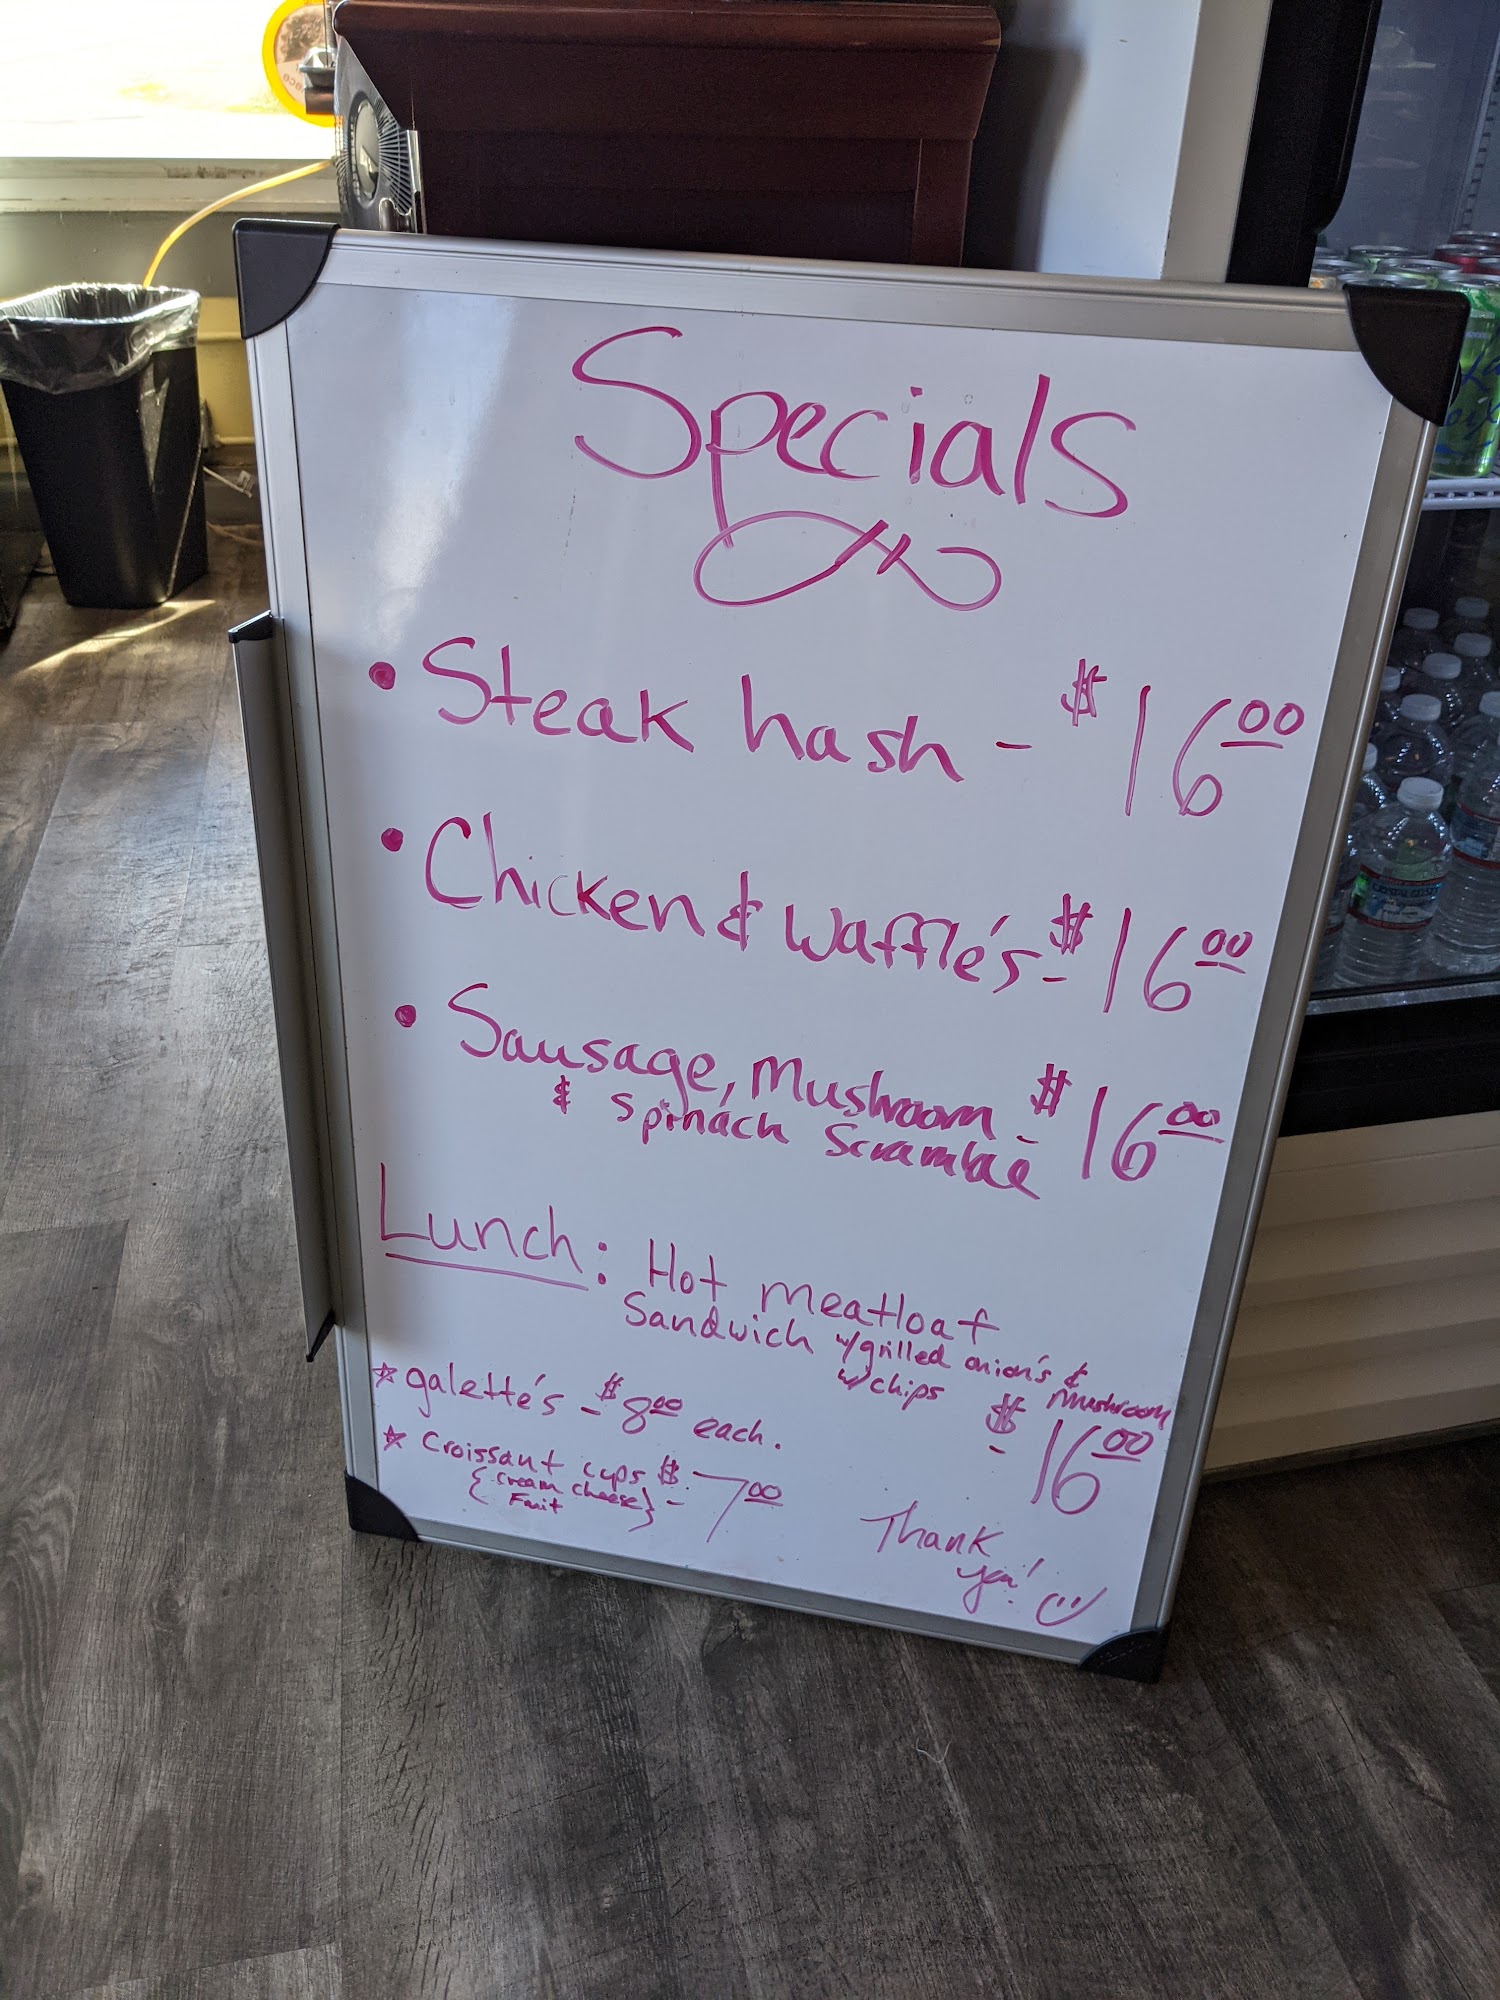 Specials
• Steak hash - $16.00
• Chicken & Waffle's - $16.00
• Sausage, Mushroom - $16.00
& Spinach Scramble
Lunch: Hot meatloaf
Sandwich w/grilled onion's &
w/chips mushroom
- $16.00
☆ galette's - $8.00 each.
☆ Croissant cups $ - 7.00
{cream cheese}
Fruit
Thank
you! :)
La
Croix
CRYSTAL GEYSER